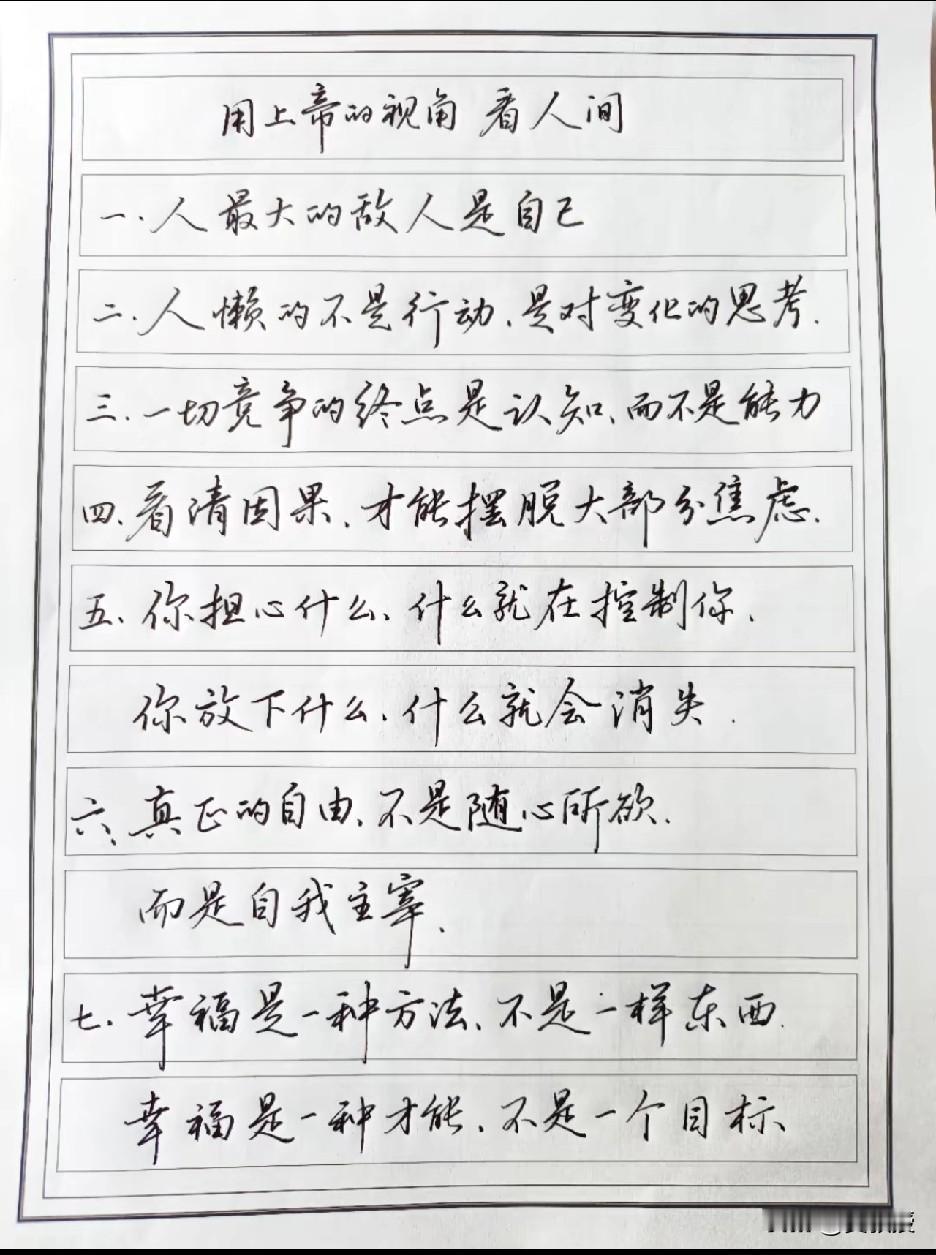 用上帝的视角 看人间
一.人最大的敌人是自己
二.人懒的不是行动、是对变化的思考.
三.一切竞争的终点是认知、而不是能力
四、看清因果、才能摆脱大部分焦虑.
五、你担心什么、什么就在控制你.
你放下什么、什么就会消失.
六、真正的自由、不是随心所欲.
而是自我主宰.
七.幸福是一种方法、不是一样东西.
幸福是一种才能、不是一个目标、